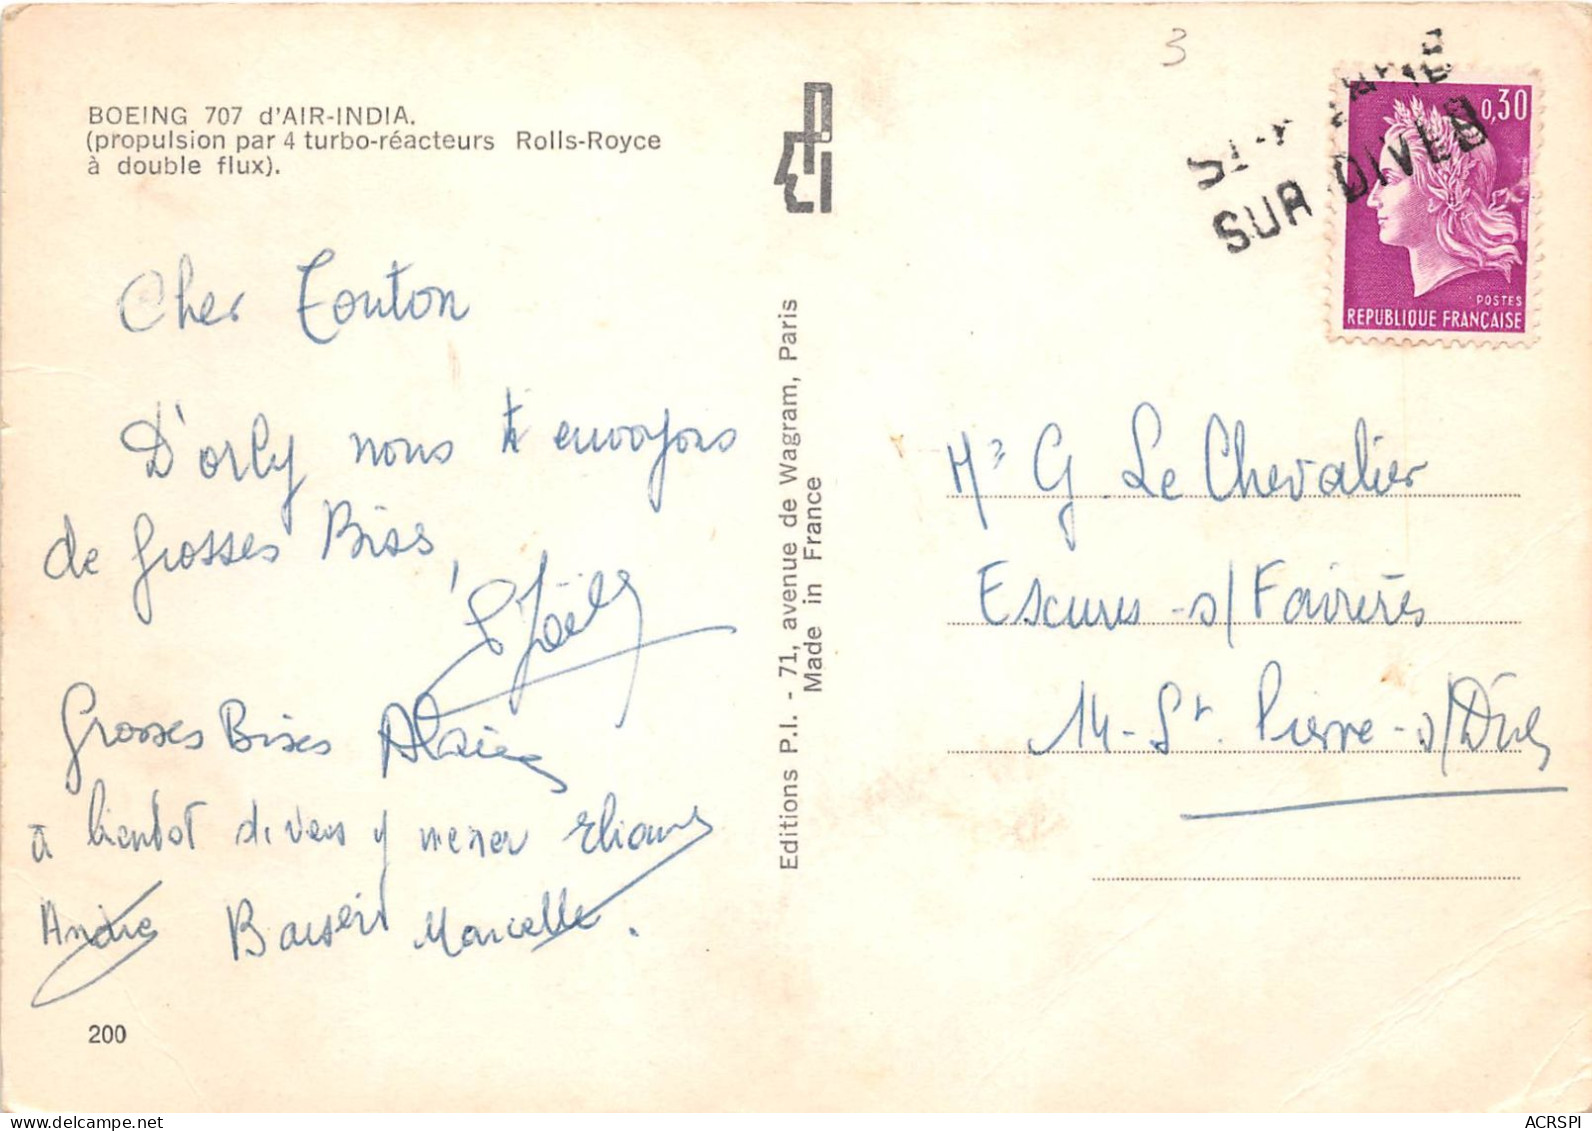 BOEING 707 d'AIR-INDIA.
(propulsion par 4 turbo-réacteurs Rolls-Royce
à double flux).
Cher Tonton
D'orly nous t'envoyons
de Grosses Bises,
Joël
Grosses Bises Alain
à bientot
Andre Marcelle.
200
Editions P.I. - 71, avenue de Wagram, Paris
Made in France
3
SUR DIVES
0,30
POSTES
REPUBLIQUE FRANÇAISE
Mr G. Le Chevalier
Escures-s/Favières
14-St. Pierre-s/Dives
delcampe.net
ACRSPI